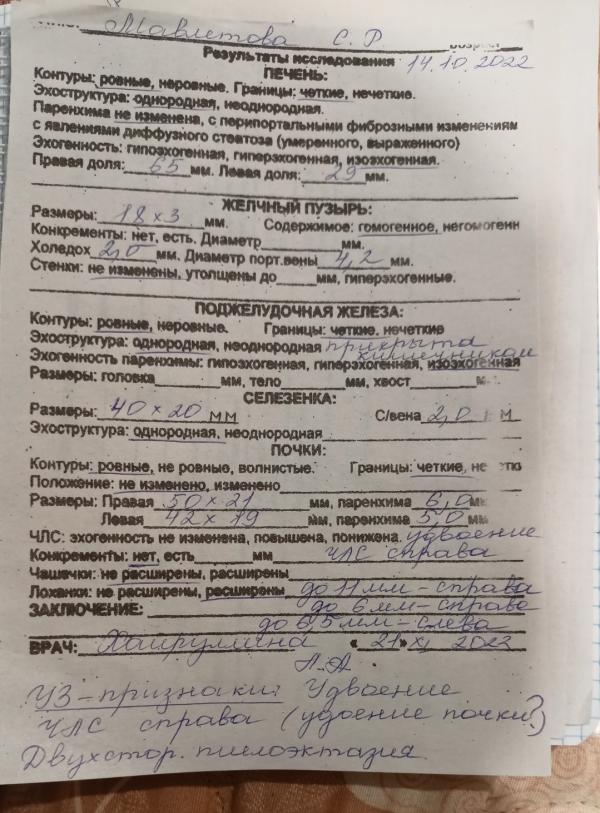 Мавлетова С. Р
Результаты исследования 14.10.2022
ПЕЧЕНЬ:
Контуры: ровные, неровные. Границы: четкие, нечеткие.
Эхоструктура: однородная, неоднородная.
Паренхима не изменена, с перипортальными фиброзными изменениям
с явлениями диффузного стеатоза (умеренного, выраженного)
Эхогенность: гипоэхогенная, гиперэхогенная, изоэхогенная.
Правая доля: 65 мм. Левая доля: 29 мм.
ЖЕЛЧНЫЙ ПУЗЫРЬ:
Размеры: 18 х 3 мм. Содержимое: гомогенное, негомогенн
Конкременты: нет, есть. Диаметр мм.
Холедох 2,0 мм. Диаметр порт.вены 4,2 мм.
Стенки: не изменены, утолщены до мм, гиперэхогенные.
ПОДЖЕЛУДОЧНАЯ ЖЕЛЕЗА:
Контуры: ровные, неровные. Границы: четкие, нечеткие
Эхоструктура: однородная, неоднородная прикрыта
кишечником
Эхогенность паренхимы: гипоэхогенная, гиперэхогенная, изоэхогенная
Размеры: головка мм, тело мм, хвост м
СЕЛЕЗЕНКА:
Размеры: 40 х 20 мм С/вена 2,0 м
Эхоструктура: однородная, неоднородная
ПОЧКИ:
Контуры: ровные, не ровные, волнистые. Границы: четкие, не
Положение: не изменено, изменено
Размеры: Правая 50 х 21 мм, паренхима 6,0 мм
Левая 42 х 19 мм, паренхима 5,0 мм
ЧЛС: эхогенность не изменена, повышена, понижена. удвоение
Конкременты: нет, есть мм ЧЛС справа
Чашечки: не расширены, расширены
Лоханки: не расширены, расширены до 11 мм - справа
ЗАКЛЮЧЕНИЕ: до 6 мм - справа
до 6,5 мм - слева
ВРАЧ: Хайруллина « 21» 2022
Л.А
УЗ-признаки: Удвоение
ЧЛС справа (удоение почки?)
Двухстор. пиелоэктазия